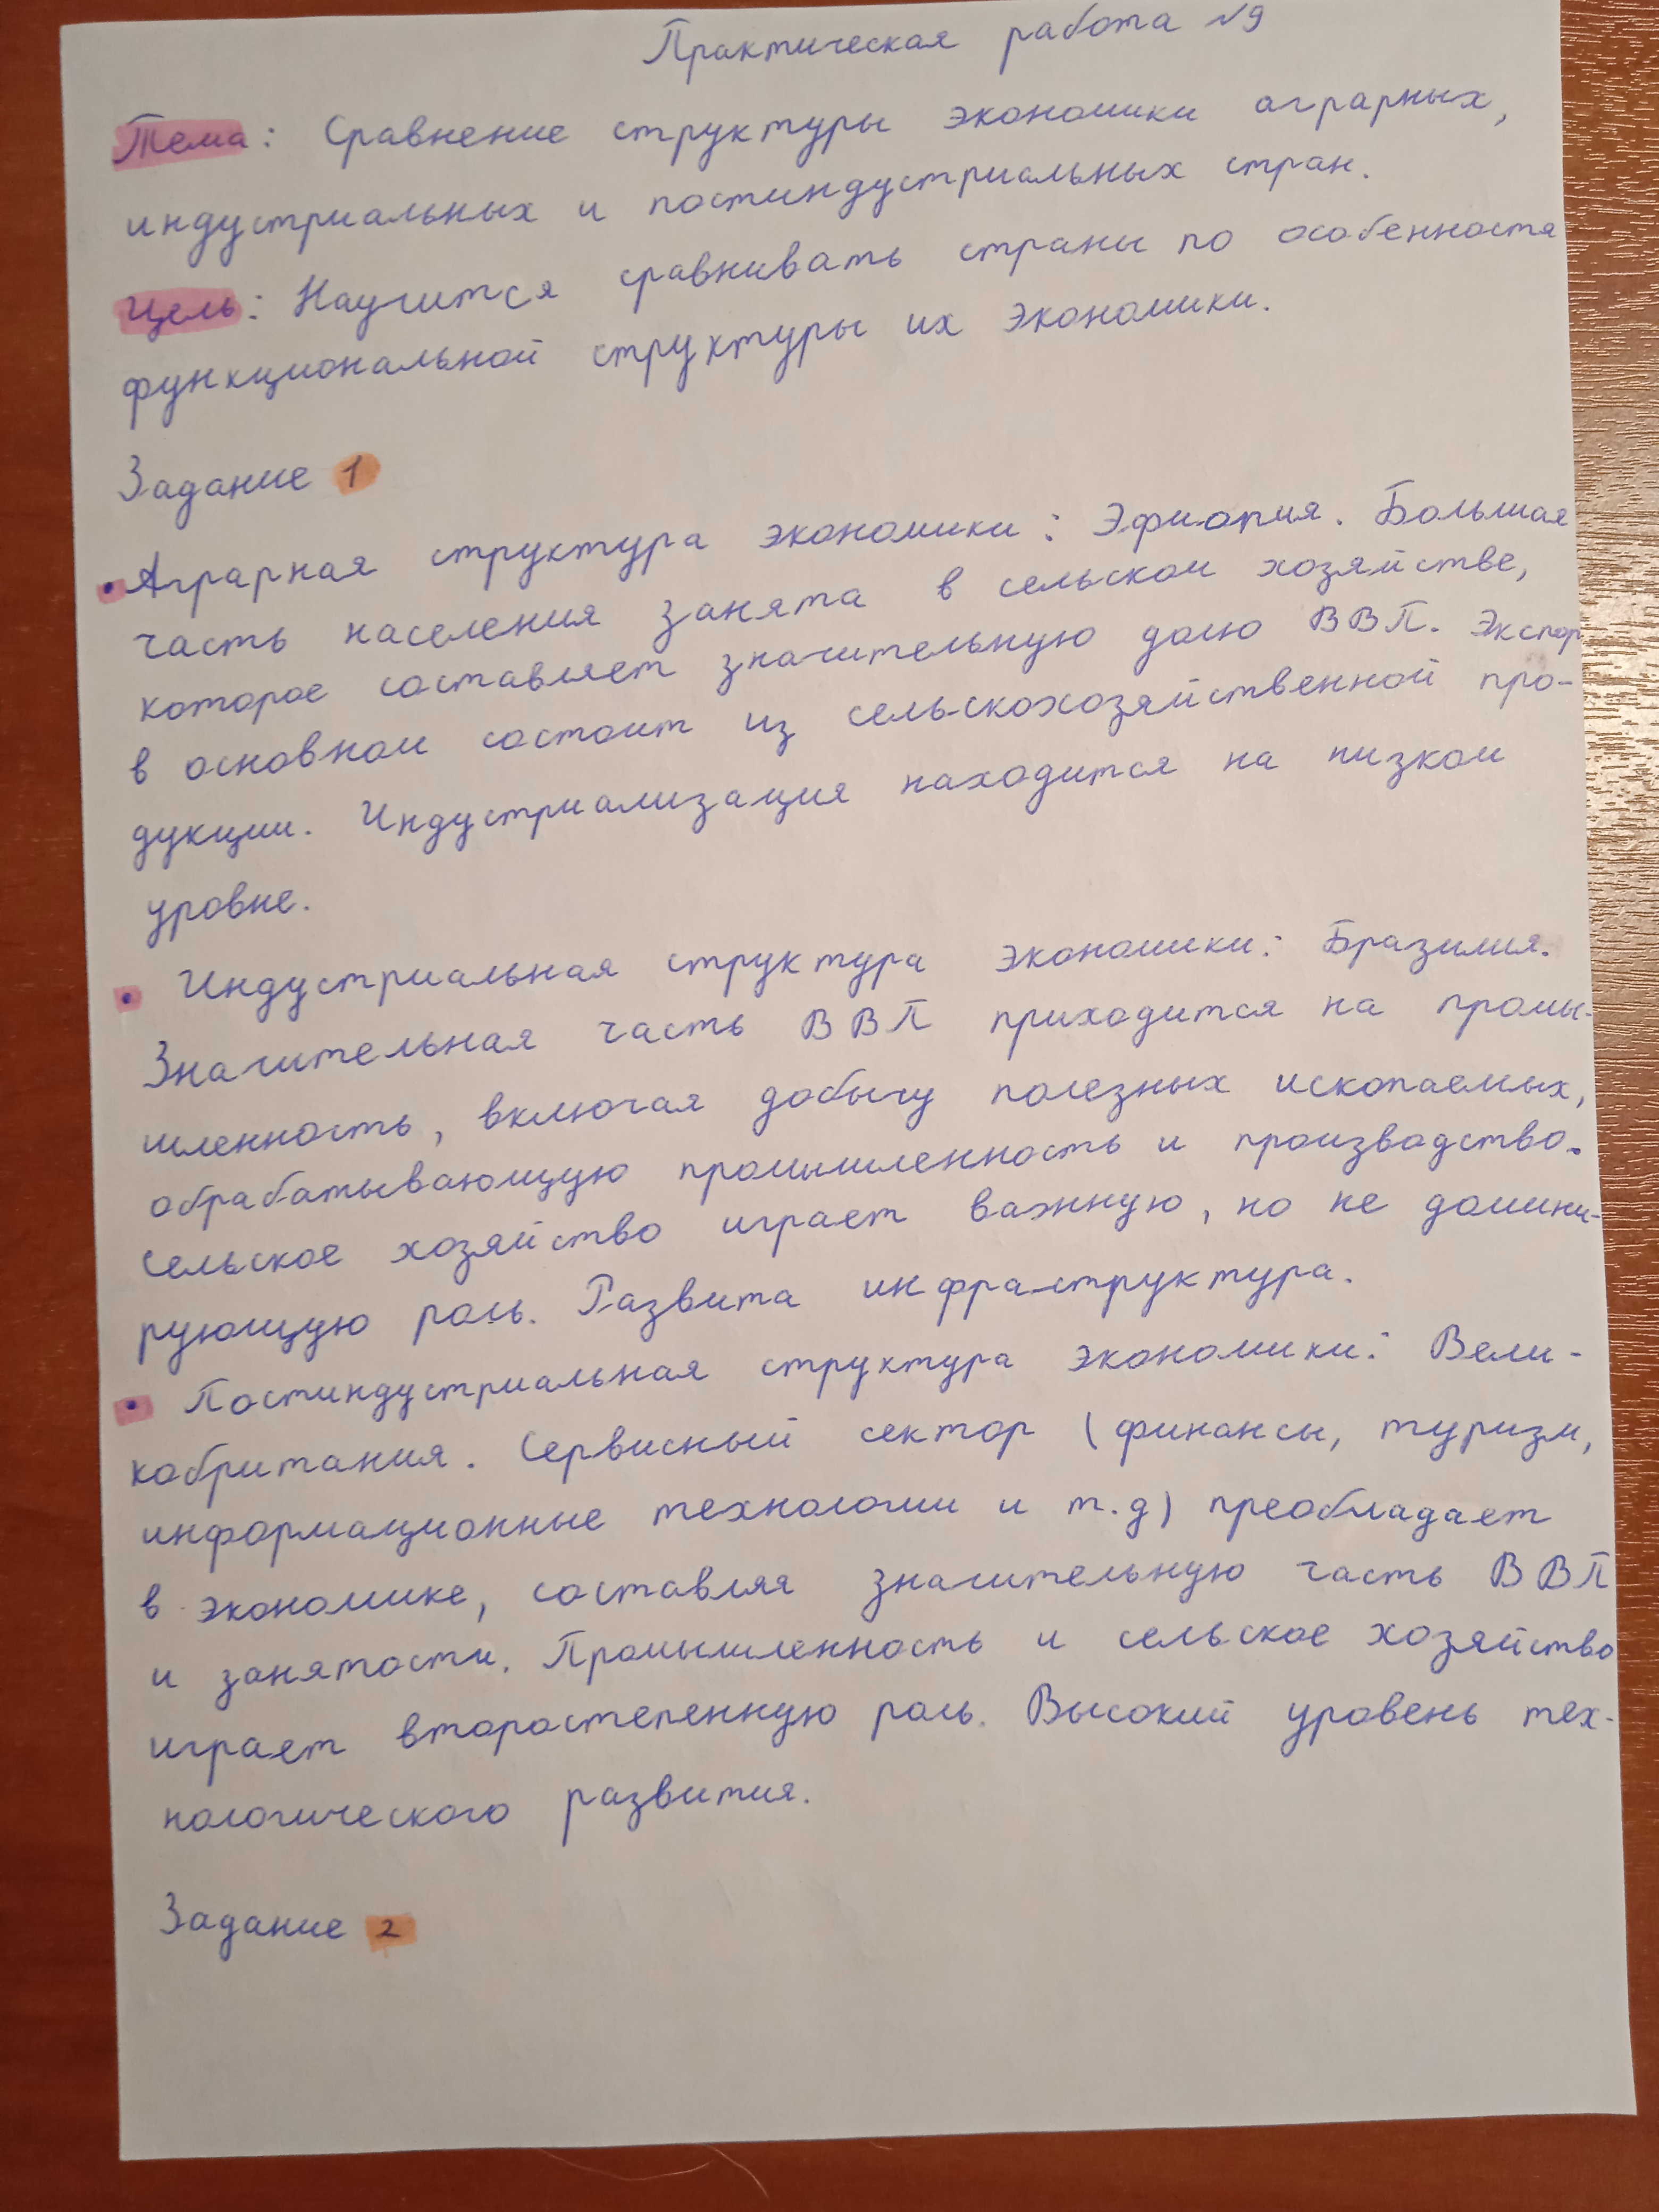 Практическая работа №9
Тема: Сравнение структуры экономики аграрных,
индустриальных и постиндустриальных стран.
Цель: Научится сравнивать страны по особенностя
функциональной структуры их экономики.
Задание 1
• Аграрная структура экономики: Эфиопия. Большая
часть населения занята в сельском хозяйстве,
которое составляет значительную долю ВВП. Экспор
в основном состоит из сельскохозяйственной про-
дукции. Индустриализация находится на низком
уровне.
• Индустриальная структура экономики: Бразилия.
Значительная часть ВВП приходится на промы-
шленность, включая добычу полезных ископаемых,
обрабатывающую промышленность и производство.
Сельское хозяйство играет важную, но не домини-
рующую роль. Развита инфраструктура.
• Постиндустриальная структура экономики: Вели-
кобритания. Сервисный сектор (финансы, туризм,
информационные технологии и т.д) преобладает
в экономике, составляя значительную часть ВВП
и занятости. Промышленность и сельское хозяйство
играет второстепенную роль. Высокий уровень тех-
нологического развития.
Задание 2